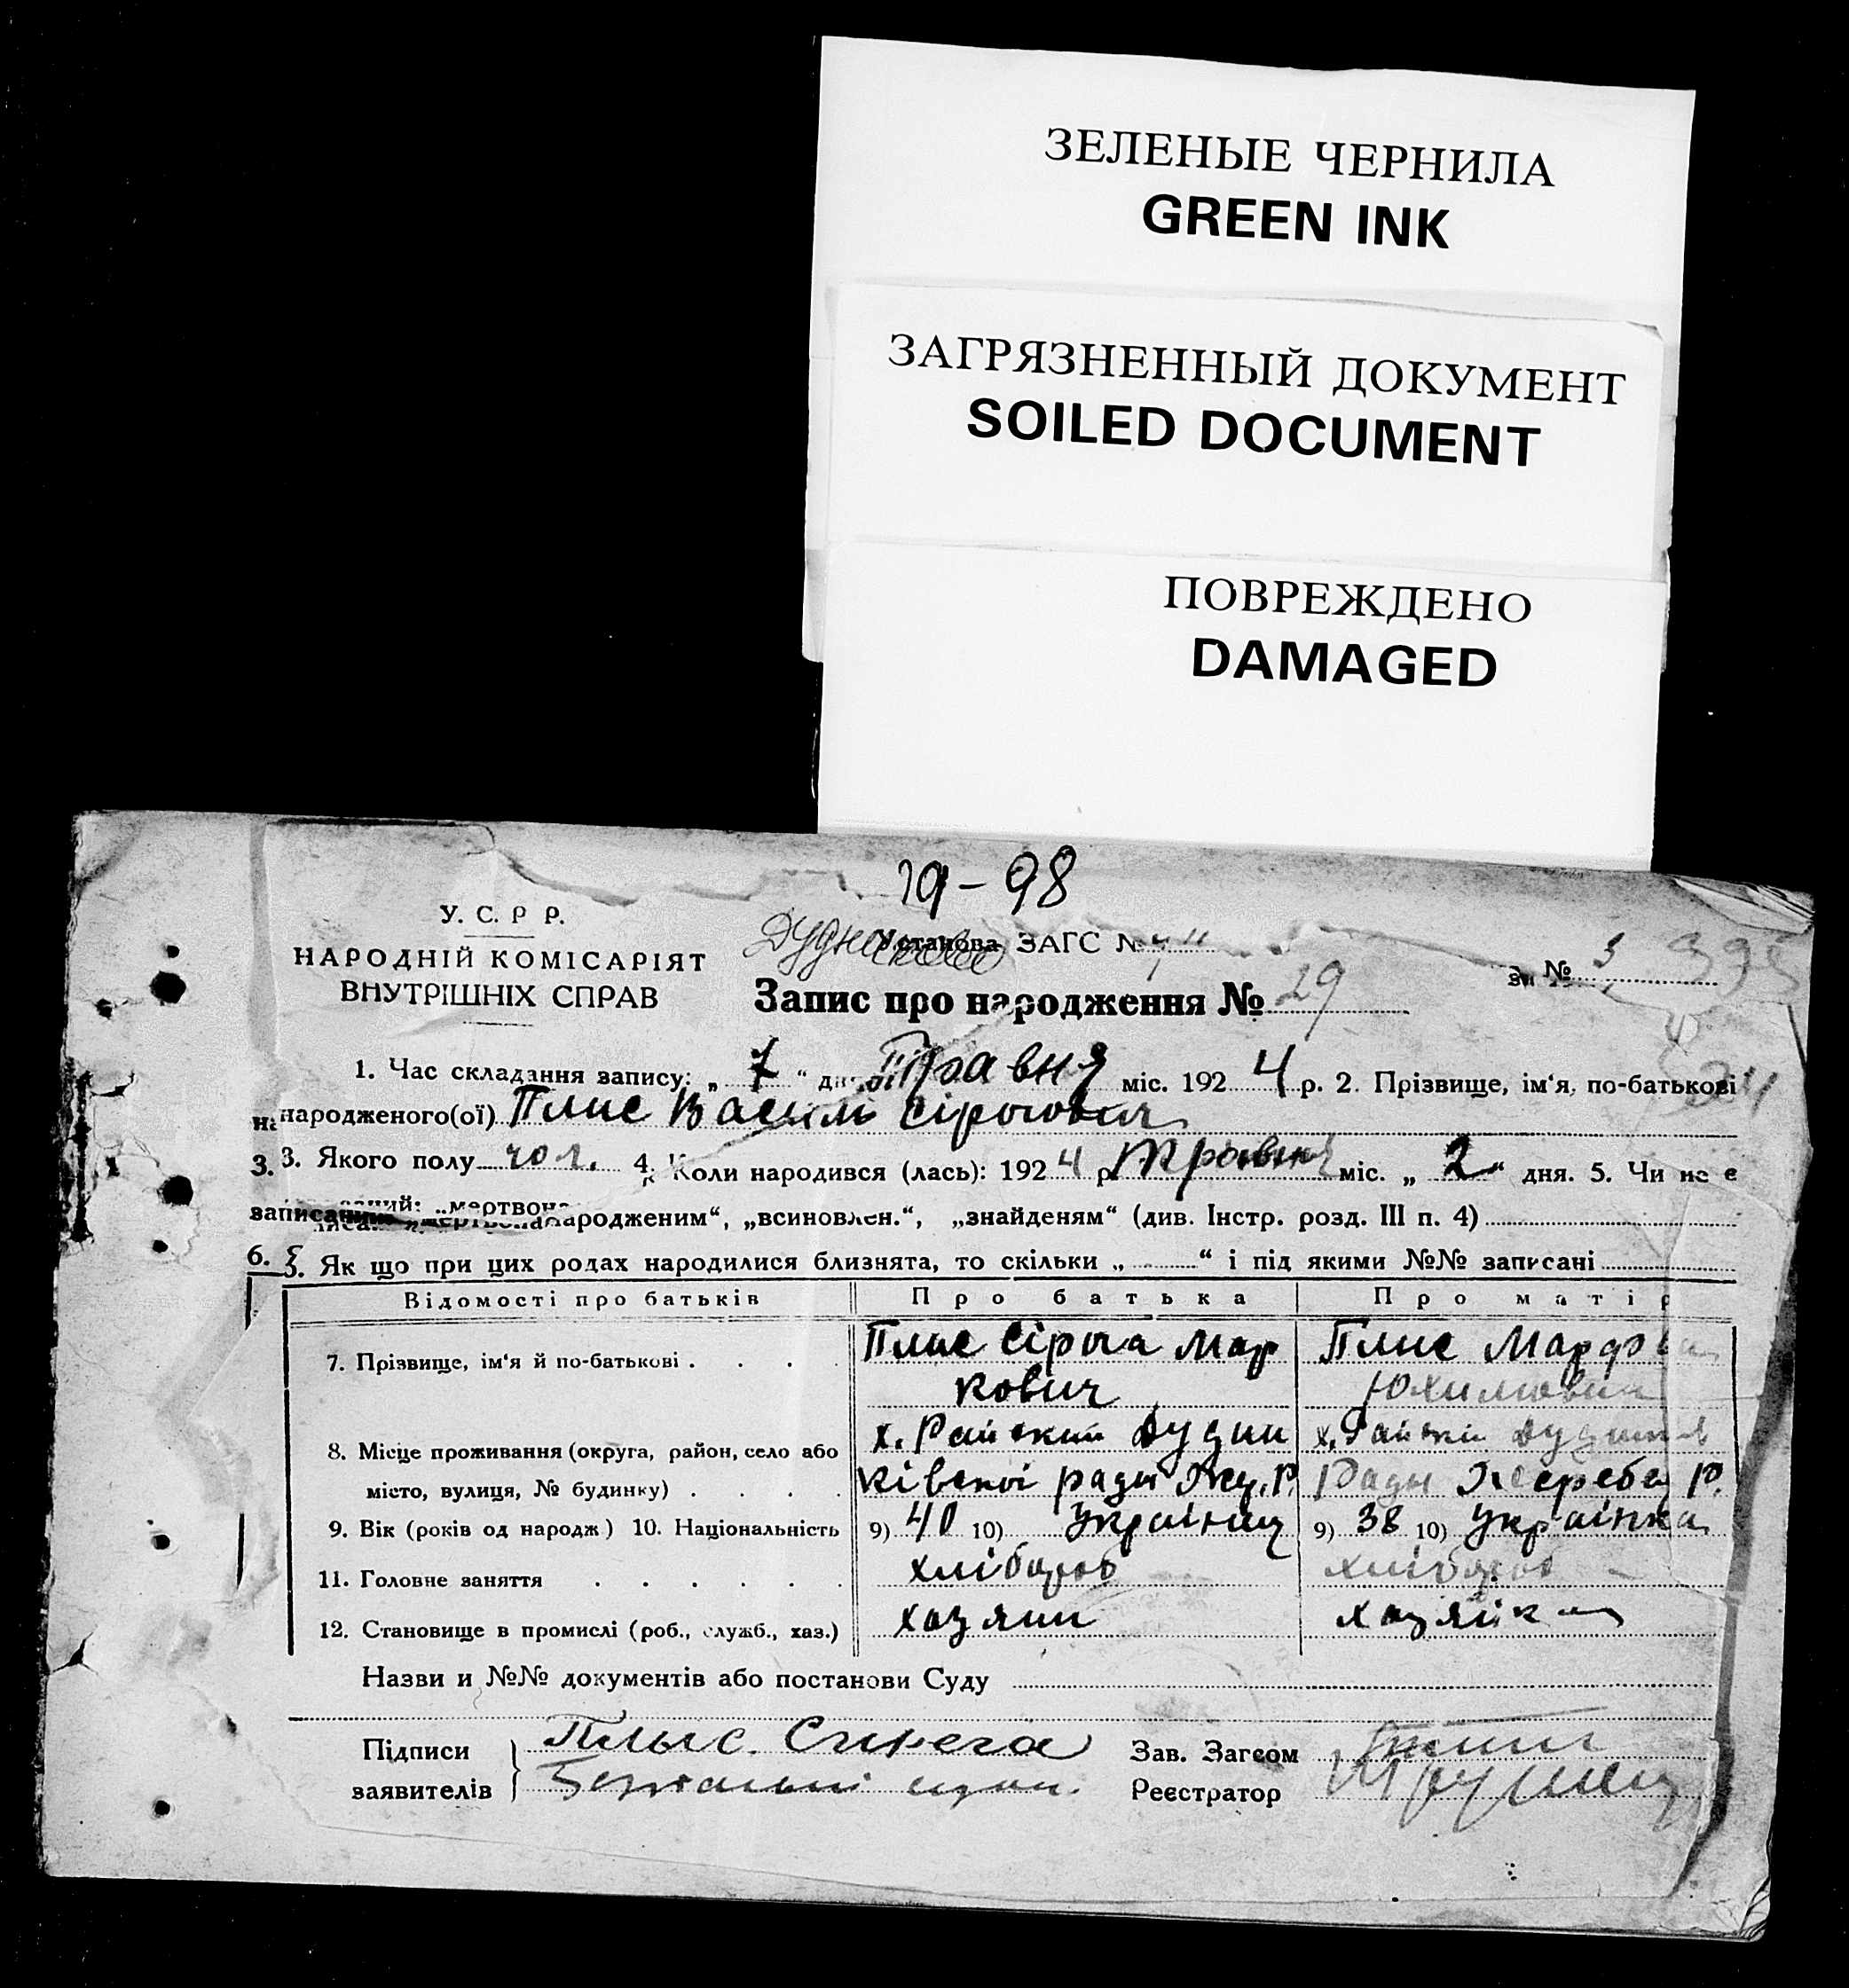 ЗЕЛЕНЫЕ ЧЕРНИЛА
GREEN INK
ЗАГРЯЗНЕННЫЙ ДОКУМЕНТ
SOILED DOCUMENT
ПОВРЕЖДЕНО
DAMAGED
19-98
У. С. Р Р.
НАРОДНІЙ КОМІСАРІЯТ
ВНУТРІШНІХ СПРАВ
Установа ЗАГС №
Запис про народження № 29
№ 3 395
1. Час складання запису: „ 7 “ дня Травня міс. 192 4 р. 2. Прізвище, ім‘я, по-батькові
народженого(ої) Плис Василь Сірогович
3. Якого полу чол. 4. Коли народився (лась): 192 4 р. Травня міс. „ 2 “ дня. 5. Чи не є
записаний: „мертвонародженим“, „всиновлен.“, „знайденям“ (див. Інстр. розд. III п. 4)
6. Як що при цих родах народилися близнята, то скільки „ “ і під якими №№ записані
Відомості про батьків Про батька Про матір
7. Прізвище, ім‘я й по-батькові . . . . Плис Сірога Мар Плис Марфа
кович Юхимовна
8. Місце проживання (округа, район, село або х. Райский Дудни х. Райский
місто, вулиця, № будинку) . . . . ківскої ради Же. Р. Ради Жеребец Р.
9. Вік (років од народж) 10. Національність 9) 40 10) Українец 9) 38 10) Українка
11. Головне заняття . . . . . . хлібороб хлібороб
12. Становище в промислі (роб., служб., хаз.) хазяин хазяйка
Назви и №№ документів або постанови Суду
Підписи Плыс. Сирега Зав. Загсом
заявителів Реєстратор